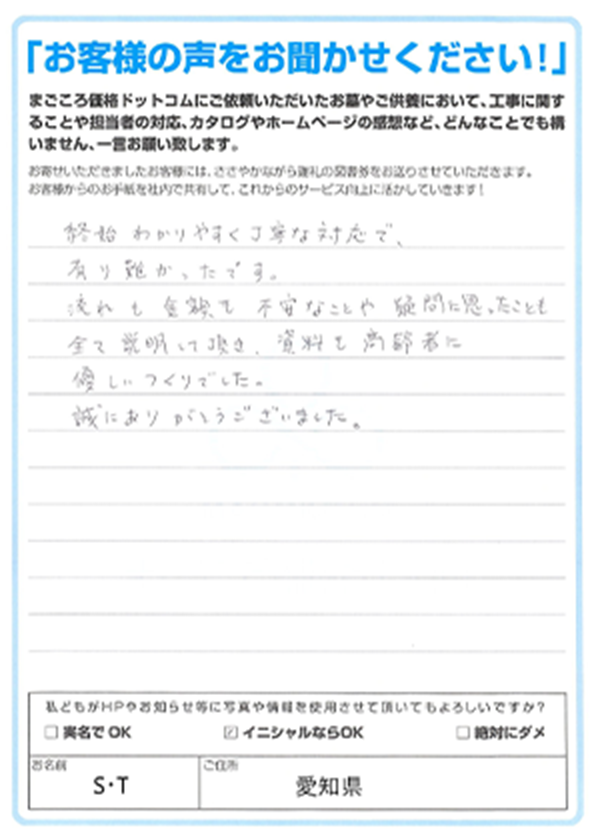 「お客様の声をお聞かせください！」
まごころ価格ドットコムにご依頼いただいたお墓やご供養において、工事に関す
ることや担当者の対応、カタログやホームページの感想など、どんなことでも構
いません、一言お願い致します。
お寄せいただきましたお客様には、ささやかながら謝礼の図書券をお送りさせていただきます。
お客様からのお手紙を社内で共有して、これからのサービス向上に活かしていきます！
終始 わかりやすく丁寧な対応で、
有り難かったです。
流れも金額も 不安なことや 疑問に思ったことも
全て説明して頂き、資料も高齢者に
優しいつくりでした。
誠にありがとうございました。
私どもがHPやお知らせ等に写真や情報を使用させて頂いてもよろしいですか？
□ 実名でOK ☑ イニシャルならOK □ 絶対にダメ
お名前 S・T ご住所 愛知県